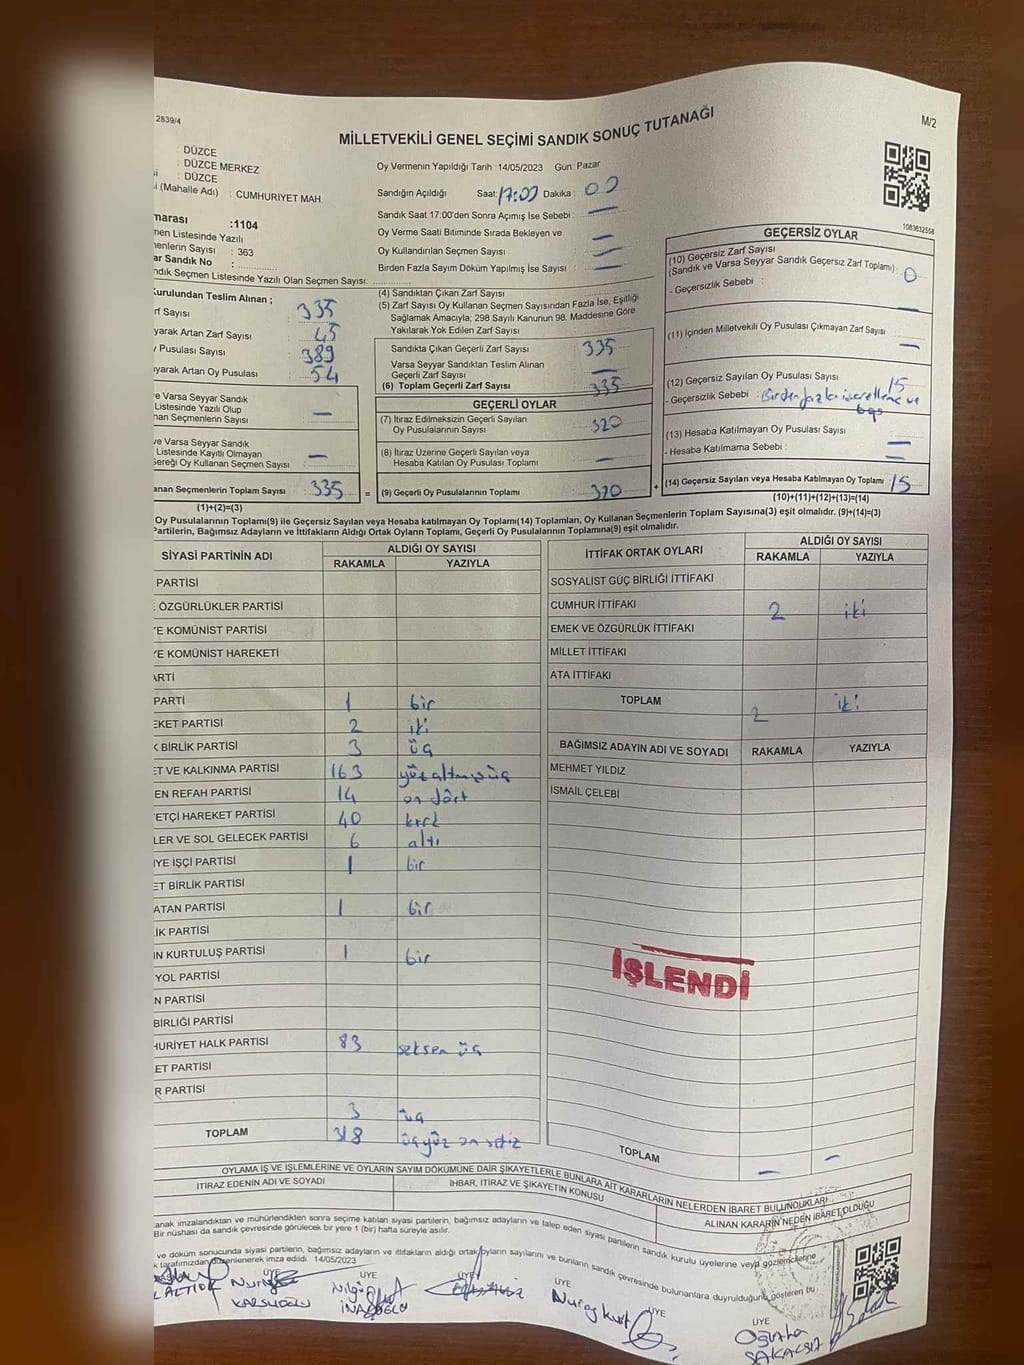 2839/4
M/2
MİLLETVEKİLİ GENEL SEÇİMİ SANDIK SONUÇ TUTANAĞI
: DÜZCE
: DÜZCE MERKEZ
: DÜZCE
i (Mahalle Adı) : CUMHURİYET MAH.
Oy Vermenin Yapıldığı Tarih :14/05/2023 Gün: Pazar
Sandığın Açıldığı Saat: 17:00 Dakika : 00
Sandık Saat 17:00'den Sonra Açımış İse Sebebi : —
Oy Verme Saati Bitiminde Sırada Bekleyen ve
Oy Kullandırılan Seçmen Sayısı : —
Birden Fazla Sayım Döküm Yapılmış İse Sayısı : —
marası :1104
men Listesinde Yazılı
nenlerin Sayısı : 363
ar Sandık No :
ndık Seçmen Listesinde Yazılı Olan Seçmen Sayısı:
Kurulundan Teslim Alınan ;
rf Sayısı : 335
yarak Artan Zarf Sayısı : 45
y Pusulası Sayısı : 389
ıyarak Artan Oy Pusulası : 54
ve Varsa Seyyar Sandık
Listesinde Yazılı Olup
nan Seçmenlerin Sayısı : —
ve Varsa Seyyar Sandık
Listesinde Kayıtlı Olmayan
Gereği Oy Kullanan Seçmen Sayısı : —
anan Seçmenlerin Toplam Sayısı : 335
(1)+(2)=(3)
(4) Sandıktan Çıkan Zarf Sayısı
(5) Zarf Sayısı Oy Kullanan Seçmen Sayısından Fazla İse, Eşitliği
Sağlamak Amacıyla; 298 Sayılı Kanunun 98. Maddesine Göre
Yakılarak Yok Edilen Zarf Sayısı
Sandıkta Çıkan Geçerli Zarf Sayısı : 335
Varsa Seyyar Sandıktan Teslim Alınan
Geçerli Zarf Sayısı : —
(6) Toplam Geçerli Zarf Sayısı : 335
GEÇERLİ OYLAR
(7) İtiraz Edilmeksizin Geçerli Sayılan
Oy Pusulalarının Sayısı : 320
(8) İtiraz Üzerine Geçerli Sayılan veya
Hesaba Katılan Oy Pusulası Toplamı : —
= (9) Geçerli Oy Pusulalarının Toplamı : 320
1083632558
GEÇERSİZ OYLAR
(10) Geçersiz Zarf Sayısı
(Sandık ve Varsa Seyyar Sandık Geçersiz Zarf Toplamı) : 0
- Geçersizlik Sebebi : —
(11) İçinden Milletvekili Oy Pusulası Çıkmayan Zarf Sayısı
—
(12) Geçersiz Sayılan Oy Pusulası Sayısı : 15
- Geçersizlik Sebebi : Birden fazla işaretleme ve
boş
(13) Hesaba Katılmayan Oy Pusulası Sayısı : —
- Hesaba Katılmama Sebebi : —
+ (14) Geçersiz Sayılan veya Hesaba Katılmayan Oy Toplamı : 15
(10)+(11)+(12)+(13)=(14)
Oy Pusulalarının Toplamı(9) ile Geçersiz Sayılan veya Hesaba katılmayan Oy Toplamı(14) Toplamları, Oy Kullanan Seçmenlerin Toplam Sayısına(3) eşit olmalıdır. (9)+(14)=(3)
Partilerin, Bağımsız Adayların ve İttifakların Aldığı Ortak Oyların Toplamı, Geçerli Oy Pusulalarının Toplamına(9) eşit olmalıdır.
SİYASİ PARTİNİN ADI ALDIĞI OY SAYISI
RAKAMLA YAZIYLA
PARTİSİ
ÖZGÜRLÜKLER PARTİSİ
YE KOMÜNİST PARTİSİ
YE KOMÜNİST HAREKETİ
ARTİ
PARTİ 1 bir
EKET PARTİSİ 2 iki
K BİRLİK PARTİSİ 3 üç
ET VE KALKINMA PARTİSİ 163 yüzaltmışüç
EN REFAH PARTİSİ 14 on dört
ETÇİ HAREKET PARTİSİ 40 kırk
LER VE SOL GELECEK PARTİSİ 6 altı
İYE İŞÇİ PARTİSİ 1 bir
ET BİRLİK PARTİSİ
ATAN PARTİSİ 1 bir
İK PARTİSİ
IN KURTULUŞ PARTİSİ 1 bir
YOL PARTİSİ
N PARTİSİ
BİRLİĞİ PARTİSİ
HURİYET HALK PARTİSİ 83 seksen üç
ET PARTİSİ
R PARTİSİ
3 üç
TOPLAM 318 üçyüz on sekiz
İTTİFAK ORTAK OYLARI ALDIĞI OY SAYISI
RAKAMLA YAZIYLA
SOSYALİST GÜÇ BİRLİĞİ İTTİFAKI
CUMHUR İTTİFAKI 2 iki
EMEK VE ÖZGÜRLÜK İTTİFAKI
MİLLET İTTİFAKI
ATA İTTİFAKI
TOPLAM 2 iki
BAĞIMSIZ ADAYIN ADI VE SOYADI RAKAMLA YAZIYLA
MEHMET YILDIZ
İSMAİL ÇELEBİ
İŞLENDİ
TOPLAM — —
OYLAMA İŞ VE İŞLEMLERİNE VE OYLARIN SAYIM DÖKÜMÜNE DAİR ŞİKAYETLERLE BUNLARA AİT KARARLARIN NELERDEN İBARET BULUNDUKLARI
İTİRAZ EDENİN ADI VE SOYADI İHBAR, İTİRAZ VE ŞİKAYETİN KONUSU ALINAN KARARIN NEDEN İBARET OLDUĞU
anak imzalandıktan ve mühürlendikten sonra seçime katılan siyasi partilerin, bağımsız adayların ve talep eden siyasi partilerin sandık kurulu üyelerine veya gözlemcilerine
Bir nüshası da sandık çevresinde görülecek bir yere 1 (bir) hafta süreyle asılır.
ve döküm sonucunda siyasi partilerin, bağımsız adayların ve ittifakların aldığı ortak oyların sayılarını ve bunların sandık çevresinde bulunanlara duyrulduğunu gösteren bu
k tarafımızdan düzenlenerek imza edildi. 14/05/2023
ÜYE ÜYE ÜYE ÜYE ÜYE ÜYE
Nuray
KARSLIOĞLU
Nilgün
İNAÖĞLU
Nuray Kurt
Oğuzhan